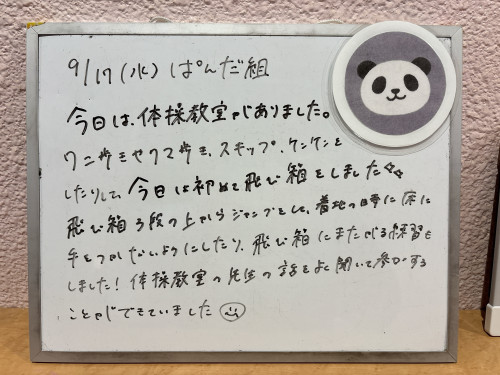 9/17(水) ぱんだ組
今日は、体操教室がありました。
ワニ歩きやクマ歩き、スキップ、ケンケンを
したりして、今日は初めて飛び箱をしました☆☆
飛び箱3段の上からジャンプをして、着地の時に床に
手をつかないようにしたり、飛び箱にまたがる練習も
しました!体操教室の先生の話をよく聞いて参加する
ことができていました